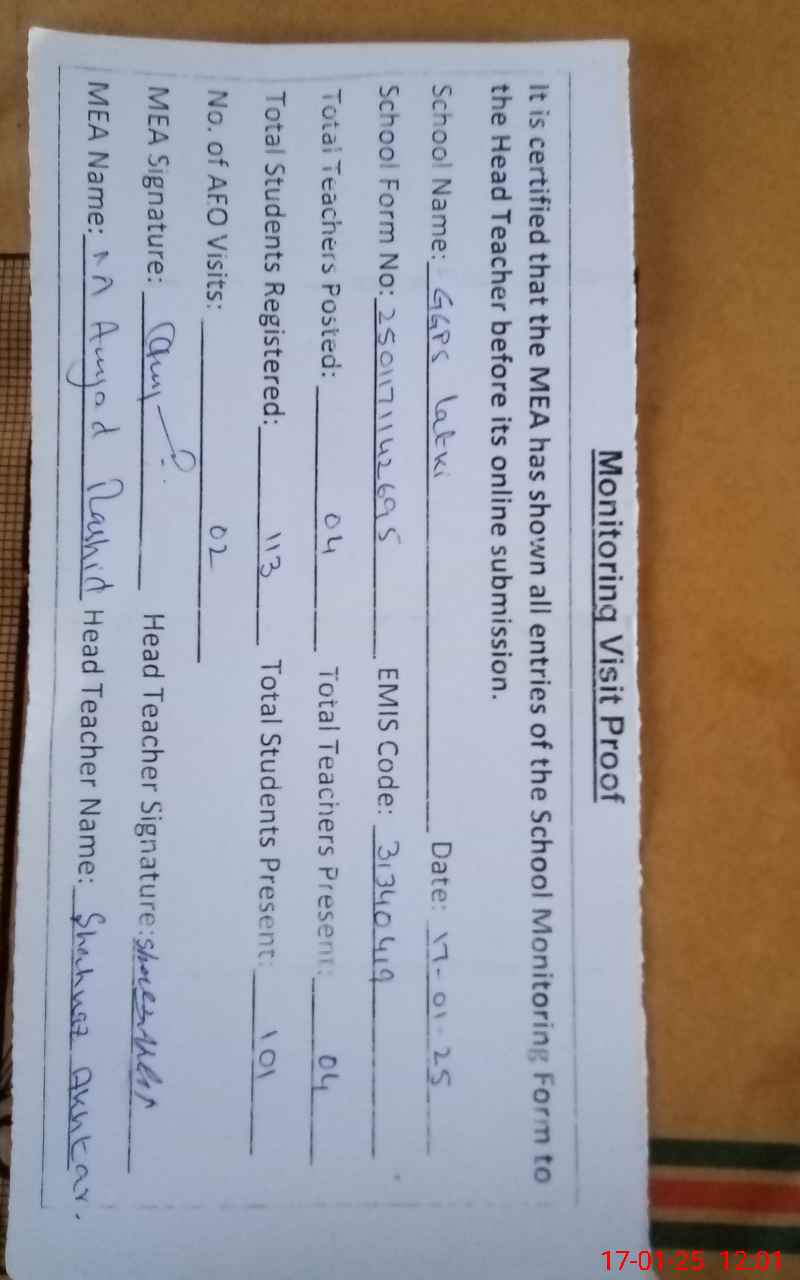 Monitoring Visit Proof
It is certified that the MEA has shown all entries of the School Monitoring Form to
the Head Teacher before its online submission.
School Name: GGPS Latki Date: 17-01-25
School Form No: 2501171142695 EMIS Code: 31340419
Total Teachers Posted: 04 Total Teachers Present: 04
Total Students Registered: 113 Total Students Present: 101
No. of AEO Visits: 02
MEA Signature: Head Teacher Signature:
MEA Name: Amjad Rashid Head Teacher Name: Shahnaz Akhtar.
17-01-25 12:01